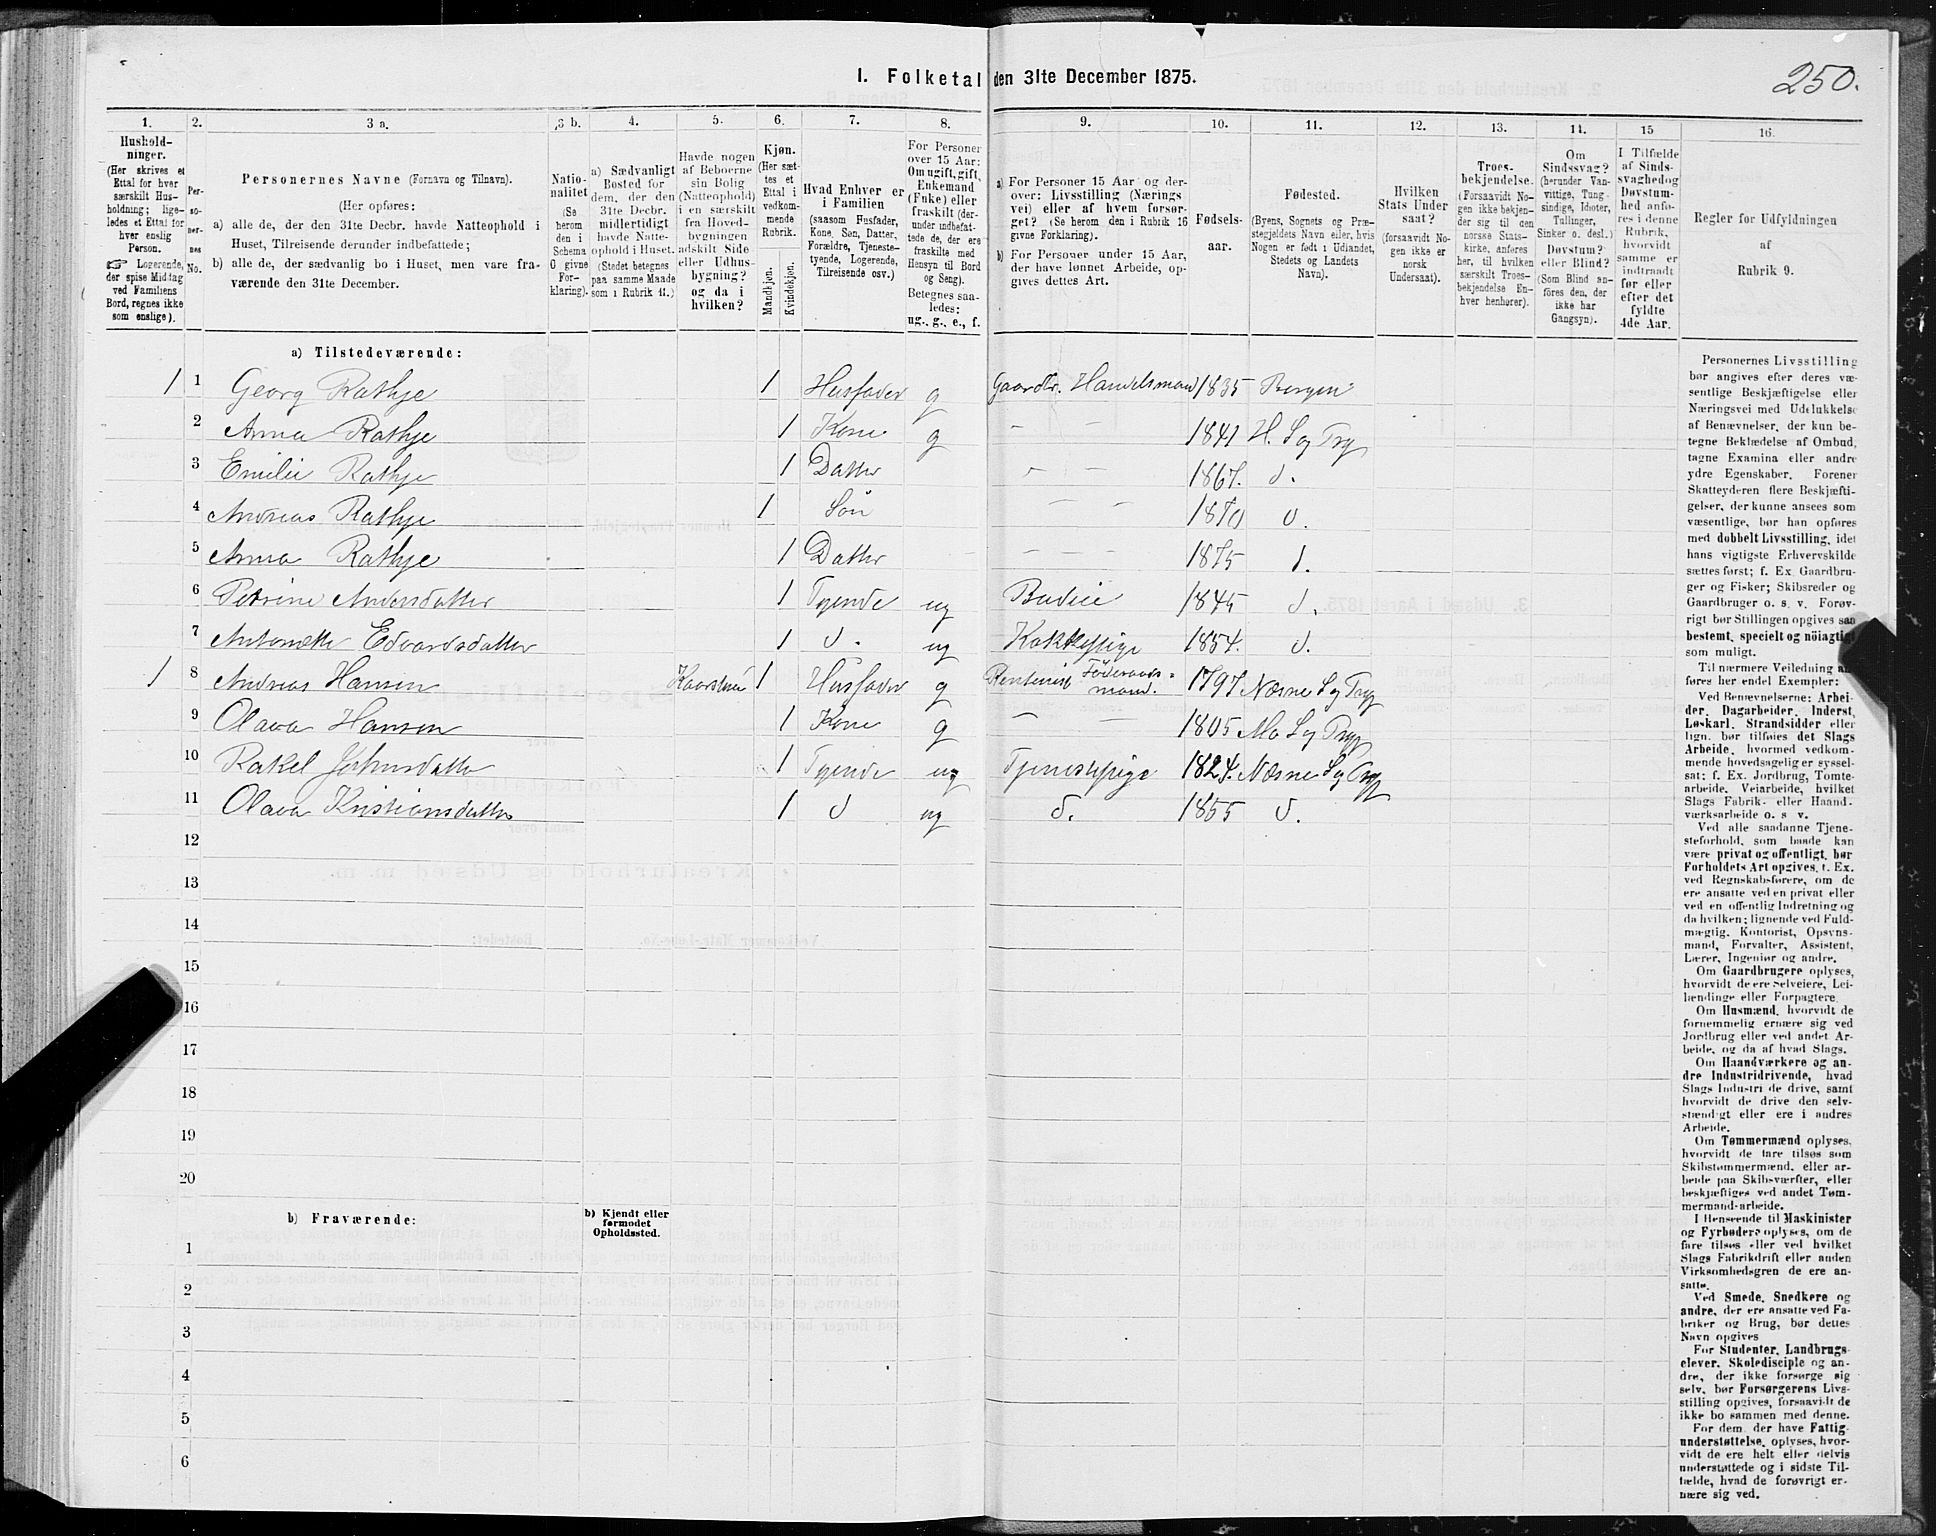 250.
I. Folketal den 31te December 1875.
1. 2. 3 a. 3 b. 4. 5. 6. 7. 8. 9. 10. 11. 12. 13. 14. 15 16.
Hushold-
ninger.
(Her skrives et
Ettal for hver
særskilt Hus-
holdning; lige-
ledes et Ettal for
hver enslig
Person.
☞ Logerende,
der spise Middag
ved Familiens
Bord, regnes ikke
som enslige).
Per-
so-
ner-
nes
No.
Personernes Navne (Fornavn og Tilnavn).
(Her opføres:
a) alle de, der den 31te Decbr. havde Natteophold i
Huset, Tilreisende derunder indbefattede;
b) alle de, der sædvanlig bo i Huset, men vare fra-
værende den 31te December.
Natio-
nalitet
(Se
herom
den i
Schema
G givne
For-
klaring).
a) Sædvanligt
Bosted for
dem, der den
31te Decbr.
midlertidigt
havde Natte-
ophold i Huset.
(Stedet betegnes
paa samme Maade
som i Rubrik 11.)
Havde nogen
af Beboerne
sin Bolig
(Natteophold)
i en særskilt
fra Hoved-
bygningen
adskilt Side-
eller Udhus-
bygning?
og da i
hvilken?
Kjøn.
(Her sæt-
tes et
Ettal i
vedkom-
mende
Rubrik.
Mandkjøn.
Kvindekjøn.
Hvad Enhver er
i Familien
(saasom Husfader,
Kone, Søn, Datter,
Forældre, Tjeneste-
tyende, Logerende,
Tilreisende osv.)
For Personer
over 15 Aar:
Om ugift, gift,
Enkemand
(Enke) eller
fraskilt (der-
under indbefat-
tede de, der ere
fraskilte med
Hensyn til Bord
og Seng).
Betegnes saa-
ledes:
ug., g., e., f.
a) For Personer 15 Aar og der-
over: Livsstilling (Nærings-
vei) eller af hvem forsør-
get? (Se herom den i Rubrik 16
givne Forklaring).
b) For Personer under 15 Aar,
der have lønnet Arbeide, op-
gives dettes Art.
Fødsels-
aar.
Fødested.
(Byens, Sognets og Præ-
stegjeldets Navn eller, hvis
Nogen er født i Udlandet,
Stedets og Landets
Navn).
Hvilken
Stats Under
saat?
(forsaavidt No-
gen ikke er
norsk
Undersaat).
Troes-
bekjendelse.
(Forsaavidt No-
gen ikke bekjen-
der sig til den
norske Stats-
kirke, anføres
her, til hvilken
særskilt Troes-
bekjendelse En-
hver henhører).
Om
Sindssvag?
(herunder Van-
vittige, Tung-
sindige, Idioter,
Tullinger,
Sinker o. desl.)
Døvstum?
eller Blind?
(Som Blind an-
føres den, der
ikke har
Gangsyn).
I Tilfælde
af Sinds-
svaghed og
Døvstum-
hed anfø-
res i denne
Rubrik,
hvorvidt
samme er
indtraadt
før eller
efter det
fyldte
4de Aar.
Regler for Udfyldningen
af
Rubrik 9.
a) Tilstedeværende:
1 1 Georg Rathje 1 Husfader g Gaardbr. Handelsmand 1835 Bergen
2 Anna Rathje 1 Kone g - - 1841 H. S og Præ
3 Emilie Rathje 1 Datter - - 1867. d.
4 Andreas Rathje 1 Søn - - 1870 d.
5 Anna Rathje 1 Datter - - 1875 d.
6 Petrine Andersdatter 1 Tyende ug Budeie 1845 d.
7 Antonette Edvardsdatter 1 d. ug Kokkepige 1854. d.
1 8 Andreas Hansen 1 Husfader g Rentenist Föderaads-
mand. 1797 Næsne S og Præ
9 Olava Hansen 1 Kone g - - 1805 Mo S og Præ
10 Rakel Johnsdatter 1 Tyende ug Tjenestepige 1824. Næsne S og Præ
11 Olava Kristiansdatter 1 d ug d. 1855 d.
12
13
14
15
16
17
18
19
20
b) Fraværende:
b) Kjendt eller
formodet
Opholdssted.
1
2
3
4
5
6
Personernes Livsstilling
bør angives efter deres væ-
sentlige Beskjæftigelse eller
Næringsvei med Udelukkelse
af Benævnelser, der kun be-
tegne Beklædelse af Ombud,
tagne Examina eller andre
ydre Egenskaber. Forener
Skatteyderen flere Beskjæfti-
gelser, der kunne ansees som
væsentlige, bør han opføres
med dobbelt Livsstilling, idet
hans vigtigste Erhvervskilde
sættes først; f. Ex. Gaardbru-
ger og Fisker; Skibsreder og
Gaardbruger o. s. v. Forøv-
rigt bør Stillingen opgives saa
bestemt, specielt og nöiagtigt
som muligt.
Til nærmere Veiledning an-
føres her endel Exempler:
Ved Benævnelserne: Arbei-
der, Dagarbeider, Inderst,
Løskarl, Strandsidder eller
lign. bør tilføies det Slags
Arbeide, hvormed vedkom-
mende hovedsagelig er syssel-
sat; f. Ex. Jordbrug, Tomte-
arbeide, Veiarbeide, hvilket
Slags Fabrik- eller Haand-
værksarbeide o. s v.
Ved alle saadanne Tjene-
steforhold, som baade kan
være privat og offentligt, bør
Forholdets Art opgives, t. Ex.
ved Regnskabsførere, om de
ere ansatte ved en privat eller
ved en offentlig Indretning og
da hvilken; lignende ved Fuld-
mægtig, Kontorist, Opsyns-
mand, Forvalter, Assistent,
Lærer, Ingeniør og andre.
Om Gaardbrugere oplyses,
hvorvidt de ere Selveiere, Lei-
lændinge eller Forpagtere
Om Husmænd, hvorvidt de
fornemmelig ernære sig ved
Jordbrug eller ved andet Ar-
beide, og da af hvad Slags.
Om Haandværkere og an-
dre Industridrivende, hvad
Slags Industri de drive, samt
hvorvidt de drive den selv-
stændigt eller ere i andres
Arbeide.
Om Tømmermænd oplyses,
hvorvidt de fare tilsøs som
Skibstømmermænd, eller ar-
beide paa Skibsværfter, eller
beskjæftiges ved andet Tøm-
mermand-arbeide.
I Henseende til Maskinister
og Fyrbødere oplyses, om de
fare tilsøs eller ved hvilket
Slags Fabrikdrift eller anden
Virksomhedsgren de ere an-
satte.
Ved Smede, Snedkere og
andre, der ere ansatte ved Fa-
briker og Brug, bør dettes
Navn opgives
For Studenter, Landbrugs-
elever, Skoledisciple og an-
dre, der ikke forsørge sig
selv, bør Forsørgerens Livs-
stilling opgives, forsaavidt de
ikke bo sammen med denne.
For dem, der have Fattig-
understøttelse, oplyses, hvor-
vidt de ere helt eller delvis
understøttede og i sidste Til-
fælde, hvad de forøvrigt er-
nære sig ved.